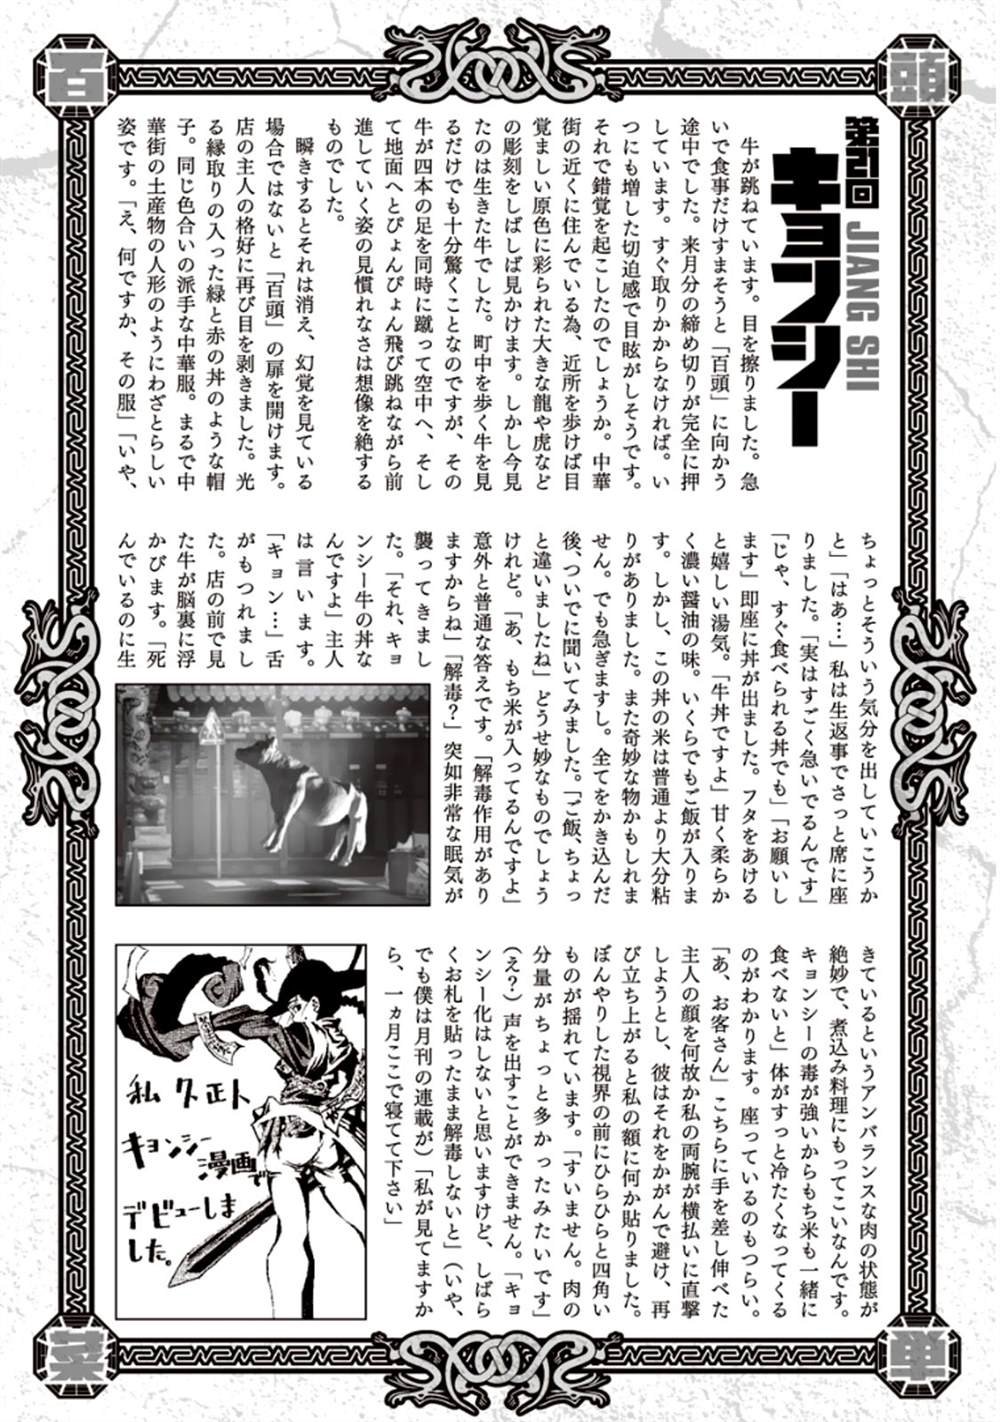 百頭
菜単
第21回
JIANG SHI
キョンシー
牛が跳ねています。目を擦りました。急
いで食事だけすまそうと「百頭」に向かう
途中でした。来月分の締め切りが完全に押
しています。すぐ取りかからなければ。い
つにも増した切迫感で目眩がしそうです。
それで錯覚を起こしたのでしょうか。中華
街の近くに住んでいる為、近所を歩けば目
覚ましい原色に彩られた大きな龍や虎など
の彫刻をしばしば見かけます。しかし今見
たのは生きた牛でした。町中を歩く牛を見
るだけでも十分驚くことなのですが、その
牛が四本の足を同時に蹴って空中へ、そし
て地面へとぴょんぴょん飛び跳ねながら前
進していく姿の見慣れなさは想像を絶する
ものでした。
瞬きするとそれは消え、幻覚を見ている
場合ではないと「百頭」の扉を開けます。
店の主人の格好に再び目を剥きました。光
る縁取りの入った緑と赤の丼のような帽
子。同じ色合いの派手な中華服。まるで中
華街の土産物の人形のようにわざとらしい
姿です。「え、何ですか、その服」「いや、
ちょっとそういう気分を出していこうか
と」「はあ…」私は生返事でさっと席に座
りました。「実はすごく急いでるんです」
「じゃ、すぐ食べられる丼でも」「お願いし
ます」即座に丼が出ました。フタをあける
と嬉しい湯気。「牛丼ですよ」甘く柔らか
く濃い醤油の味。いくらでもご飯が入りま
す。しかし、この丼の米は普通より大分粘
りがありました。また奇妙な物かもしれま
せん。でも急ぎますし。全てをかき込んだ
後、ついでに聞いてみました。「ご飯、ちょっ
と違いましたね」どうせ妙なものでしょう
けれど。「あ、もち米が入ってるんですよ」
意外と普通な答えです。「解毒作用があり
ますからね」「解毒？」突如非常な眠気が
襲ってきまし
た。「それ、キョ
ンシー牛の丼な
んですよ」主人
は言います。
「キョン…」舌
がもつれまし
た。店の前で見
た牛が脳裏に浮
かびます。「死
んでいるのに生
きているというアンバランスな肉の状態が
絶妙で、煮込み料理にもってこいなんです。
キョンシーの毒が強いからもち米も一緒に
食べないと」体がすっと冷たくなってくる
のがわかります。座っているのもつらい。
「あ、お客さん」こちらに手を差し伸べた
主人の顔を何故か私の両腕が横払いに直撃
しようとし、彼はそれをかがんで避け、再
び立ち上がると私の額に何か貼りました。
ぼんやりした視界の前にひらひらと四角い
ものが揺れています。「すいません。肉の
分量がちょっと多かったみたいです」
（え？）声を出すことができません。「キョ
ンシー化はしないと思いますけど、しばら
くお札を貼ったまま解毒しないと」（いや、
でも僕は月刊の連載が）「私が見てますか
ら、一ヵ月ここで寝てて下さい」
私 久正人
キョンシー
漫画で
デビューしま
した。